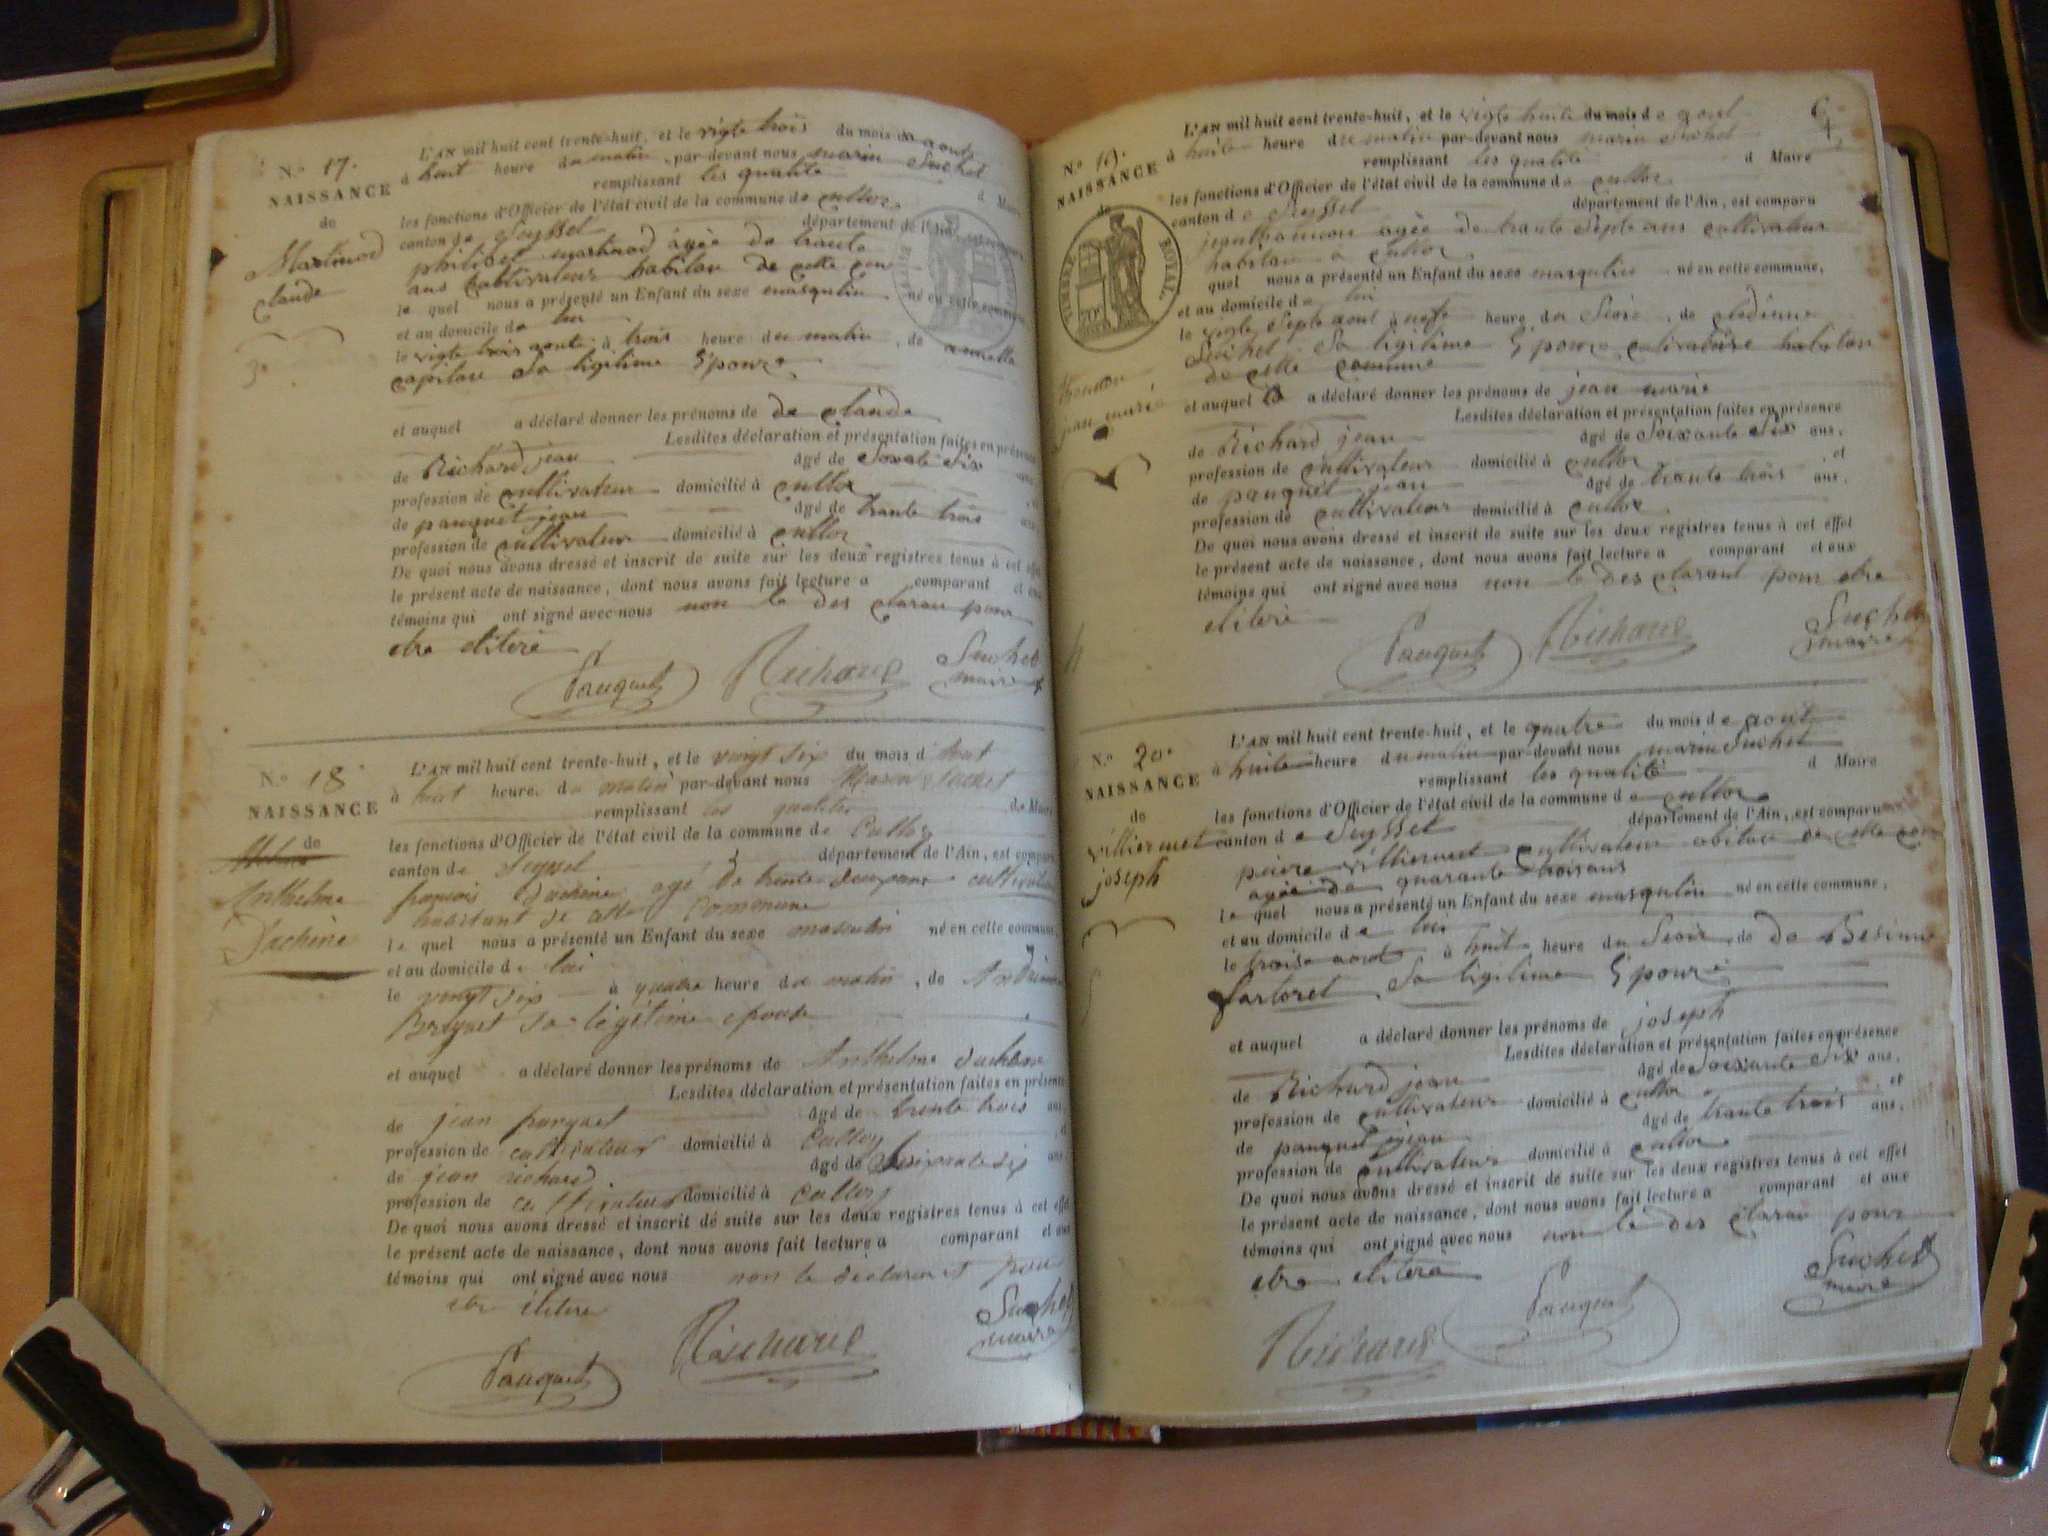 N.o 17.
NAISSANCE
de
Martinod
claude
L'AN mil huit cent trente-huit, et le vigte trois du mois d aout
à huit heure du matin, par-devant nous marin Suchet
remplissant les qualité d Maire
les fonctions d'Officier de l'état civil de la commune de culloz
canton de Seyssel département de l'Ain, est comparu
philibet martinod âgée de trante
ans cultivateur habitan de cette con
le quel nous a présenté un Enfant du sexe masqulin né en cette commune,
et au domicile de lui
le vigte trois aoute à trois heure du matin, de annette
capitan Sa ligitime Epouze
et auquel a déclaré donner les prénoms de de claude
Lesdites déclaration et présentation faites en présence
de Richard jean âgé de Soxante Six ans,
profession de cultivateur domicilié à culloz
de pauquet jean âgé de trante trois ans
profession de cultivateur domicilié à culloz
De quoi nous avons dressé et inscrit de suite sur les deux registres tenus à cet effet
le présent acte de naissance, dont nous avons fait lecture a comparant et eux
témoins qui ont signé avec nous non le des claran pour
etre elitere
Pauquet Richard Suchet
maire
N.o 18
NAISSANCE
de
Anthelme
Duchêne
L'AN mil huit cent trente-huit, et le vingt six du mois d'Aout
à huit heure du matin par-devant nous Marin Suchet
remplissant les qualites de Maire
les fonctions d'Officier de l'état civil de la commune de Culloz
canton de Seyssel département de l'Ain, est comparu
françois Duchêne agé de trente deux ans cultivateur
habitant de cette commune
le quel nous a présenté un Enfant du sexe masculin né en cette commune,
et au domicile de lui
le vingt six à quatre heure du matin, de Andrienne
Bryuet Sa légitime epouse
et auquel a déclaré donner les prénoms de Anthelme duchêne
Lesdites déclaration et présentation faites en présence
de jean pauquet âgé de trente trois ans,
profession de cultivateur domicilié à Culloz
de jean richard âgé de Soixante six ans
profession de cultivateur domicilié à Culloz
De quoi nous avons dressé et inscrit de suite sur les deux registres tenus à cet effet
le présent acte de naissance, dont nous avons fait lecture a comparant et eux
témoins qui ont signé avec nous non le déclarant pour
etre élitere
Pauquet Richard Suchet
maire
N.o 19.
NAISSANCE
de
TIMBRE ROYAL
jean marie
L'AN mil huit cent trente-huit, et le vigte huite du mois de aout
à huite heure du matin par-devant nous marin Suchet
remplissant les qualité d Maire
les fonctions d'Officier de l'état civil de la commune de culloz
canton de Seyssel département de l'Ain, est comparu
âgée de trante Septe ans cultivateur
habitan à culloz
quel nous a présenté un Enfant du sexe masqulin né en cette commune,
et au domicile de lui
le vigte Septe aout à neufe heure du Soire, de
Suchet Sa ligitime Epouze cultivatrice habitan
de cette commune
et auquel a déclaré donner les prénoms de jean marie
Lesdites déclaration et présentation faites en présence
de Richard jean âgé de Soixante Six ans,
profession de cultivateur domicilié à culloz et
de pauquet jean âgé de trante trois ans,
profession de cultivateur domicilié à culloz
De quoi nous avons dressé et inscrit de suite sur les deux registres tenus à cet effet
le présent acte de naissance, dont nous avons fait lecture a comparant et eux
témoins qui ont signé avec nous non le des clarant pour etre
elitere
Pauquet Richard Suchet
maire
N.o 20.
NAISSANCE
de
villiermet
joseph
L'AN mil huit cent trente-huit, et le quatre du mois de aout
à huite heure du matin par-devant nous marin Suchet
remplissant les qualité d Maire
les fonctions d'Officier de l'état civil de la commune de culloz
canton de Seyssel département de l'Ain, est comparu
peire villiermet cultivateur abitan de cette con
agée de quarante trois ans
le quel nous a présenté un Enfant du sexe masqulin né en cette commune,
et au domicile de lui
le troise aout à huit heure du Soir, de de
Sartoret Sa ligitime Epouze
et auquel a déclaré donner les prénoms de joseph
Lesdites déclaration et présentation faites en présence
de Richard jean âgé de Soixante Six ans,
profession de cultivateur domicilié à culloz et
de pauquet jean âgé de trante trois ans,
profession de cultivateur domicilié à culloz
De quoi nous avons dressé et inscrit de suite sur les deux registres tenus à cet effet
le présent acte de naissance, dont nous avons fait lecture a comparant et aux
témoins qui ont signé avec nous non le des claran pour
etre elitere
Richard Pauquet Suchet
maire